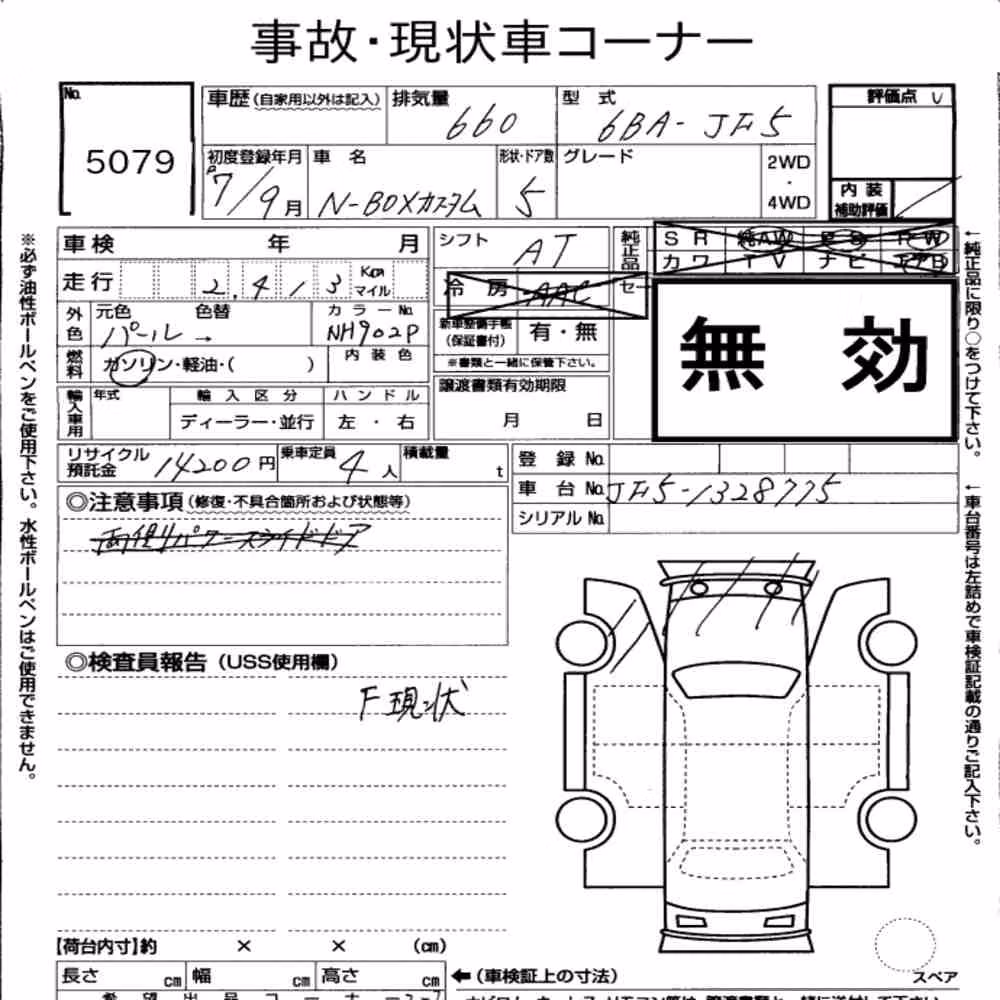 事故・現状車コーナー
No.
5079
車歴(自家用以外は記入)
排気量
660
型 式
6BA-JF5
評価点
初度登録年月
R7/9月
車 名
N-BOXカスタム
形状・ドア数
5
グレード
2WD
・
4WD
内 装
補助評価
車検 年 月
シフト
AT
純正品
SR 純AW PS PW
カワ TV ナビ エアB
走行 2.413 Km マイル
冷 房 AAC
セー
外色
元色 色替
パール →
カラーNo.
NH902P
新車整備手帳
(保証書付)
有・無
※書類と一緒に保管下さい。
無 効
燃料
ガソリン・軽油・( )
内 装 色
譲渡書類有効期限
月 日
輸入車用
年式
輸入区分
ディーラー・並行
ハンドル
左・右
リサイクル預託金
14200円
乗車定員
4人
積載量
t
登 録 No.
車 台 No.
JF5-1328775
シリアルNo.
◎注意事項(修復・不具合箇所および状態等)
両側パワースライドドア
◎検査員報告(USS使用欄)
F現状
※必ず油性ボールペンをご使用下さい。水性ボールペンはご使用できません。
←純正品に限り○をつけて下さい。
←車台番号は左詰めで車検証記載の通りご記入下さい。
【荷台内寸】約 × × (cm)
長さ cm
幅 cm
高さ cm
←(車検証上の寸法)
スペア